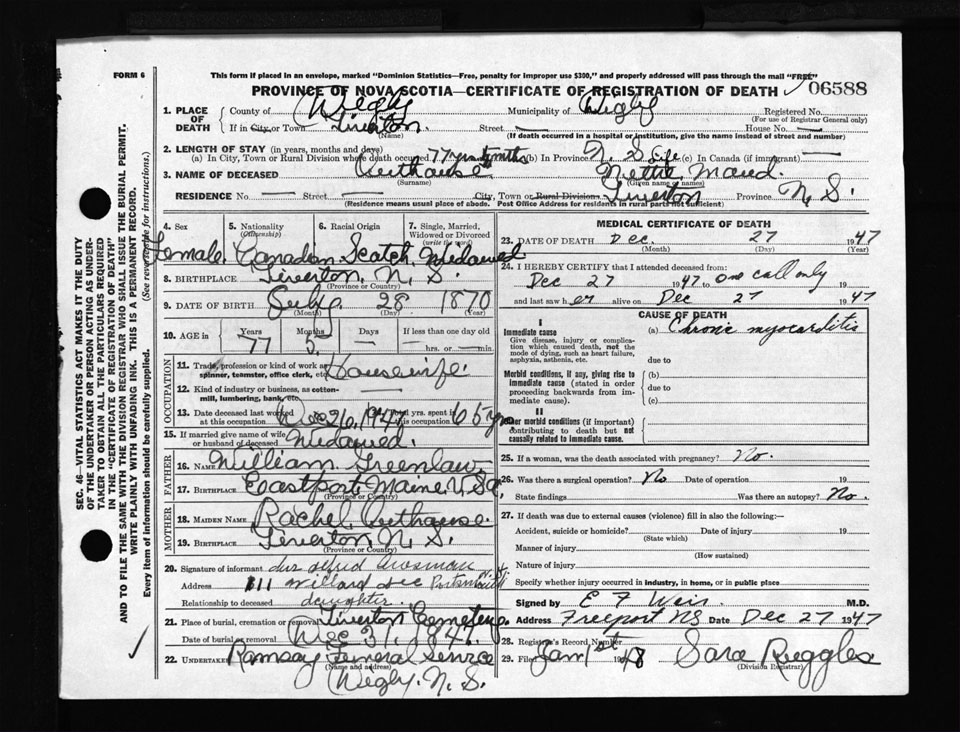 FORM 6
This form if placed in an envelope, marked "Dominion Statistics—Free, penalty for improper use $300," and properly addressed will pass through the mail "FREE"
PROVINCE OF NOVA SCOTIA—CERTIFICATE OF REGISTRATION OF DEATH 06588
1. PLACE OF DEATH County of Digby Municipality of Digby Registered No.
(For use of Registrar General only)
If in City or Town Tiverton. Street — House No. —
(Name) (If death occurred in a hospital or institution, give the name instead of street and number)
2. LENGTH OF STAY (in years, months and days)
(a) In City, Town or Rural Division where death occurred 77 yrs 5 mths (b) In Province N. S. Life (c) In Canada (if immigrant) —
3. NAME OF DECEASED Outhouse Nettie Maud.
(Surname) (Given name or names)
RESIDENCE No. — Street — City, Town or Rural Division Tiverton Province N. S.
(Residence means usual place of abode. Post Office Address for residents in rural parts not sufficient)
4. Sex 5. Nationality (Citizenship) 6. Racial Origin 7. Single, Married, Widowed or Divorced (write the word)
Female. Canadian Scotch. Widowed
8. BIRTHPLACE Tiverton, N. S.
(Province or Country)
9. DATE OF BIRTH July 28 1870
(Month) (Day) (Year)
10. AGE in Years Months Days If less than one day old
77 5 — — hrs. or — min.
OCCUPATION
11. Trade, profession or kind of work as spinner, teamster, office clerk, etc. Housewife.
12. Kind of industry or business, as cotton-mill, lumbering, bank, etc.
13. Date deceased last worked at this occupation Dec 26, 1947 yrs. spent in this occupation 65 yrs
15. If married give name of wife or husband of deceased Widowed.
FATHER
16. NAME William Greenlaw.
17. BIRTHPLACE Eastport, Maine U.S.a.
(Province or Country)
MOTHER
18. MAIDEN NAME Rachel Outhouse.
19. BIRTHPLACE Tiverton N. S.
(Province or Country)
20. Signature of informant Mrs Alfred
Address 111 Willard Portsmouth
Relationship to deceased daughter.
21. Place of burial, cremation or removal Tiverton Cemetery.
Date of burial or removal Dec 31, 1947.
22. UNDERTAKER Ramsay Funeral Service
(Name and address)
Digby. N. S.
MEDICAL CERTIFICATE OF DEATH
23. DATE OF DEATH Dec. 27 1947
(Month) (Day) (Year)
24. I HEREBY CERTIFY that I attended deceased from:
Dec 27 1947 to one call only 19
and last saw her alive on Dec 27 1947
CAUSE OF DEATH
I
Immediate cause (a) Chronic myocarditis
Give disease, injury or complication which caused death, not the mode of dying, such as heart failure, asphyxia, asthenia, etc. due to
Morbid conditions, if any, giving rise to immediate cause (stated in order proceeding backwards from immediate cause). (b)
due to
(c)
II
Other morbid conditions (if important) contributing to death but not causally related to immediate cause.
25. If a woman, was the death associated with pregnancy? No.
26. Was there a surgical operation? No Date of operation 19
State findings Was there an autopsy? No.
27. If death was due to external causes (violence) fill in also the following:—
Accident, suicide or homicide? Date of injury 19
(State which)
Manner of injury
(How sustained)
Nature of injury
Specify whether injury occurred in industry, in home, or in public place
Signed by E F Weir M.D.
Address Freeport NS Date Dec 27 1947
28. Registrar's Record Number
29. Filed Jan 1st 1948 Sara Ruggles
(Division Registrar)
SEC. 46—VITAL STATISTICS ACT MAKES IT THE DUTY
OF THE UNDERTAKER OR PERSON ACTING AS UNDER-
TAKER TO OBTAIN ALL THE PARTICULARS REQUIRED
IN THE "CERTIFICATE OF REGISTRATION OF DEATH"
AND TO FILE THE SAME WITH THE DIVISION REGISTRAR WHO SHALL ISSUE THE BURIAL PERMIT.
WRITE PLAINLY WITH UNFADING INK. THIS IS A PERMANENT RECORD.
Every item of information should be carefully supplied. (See reverse side for instructions.)